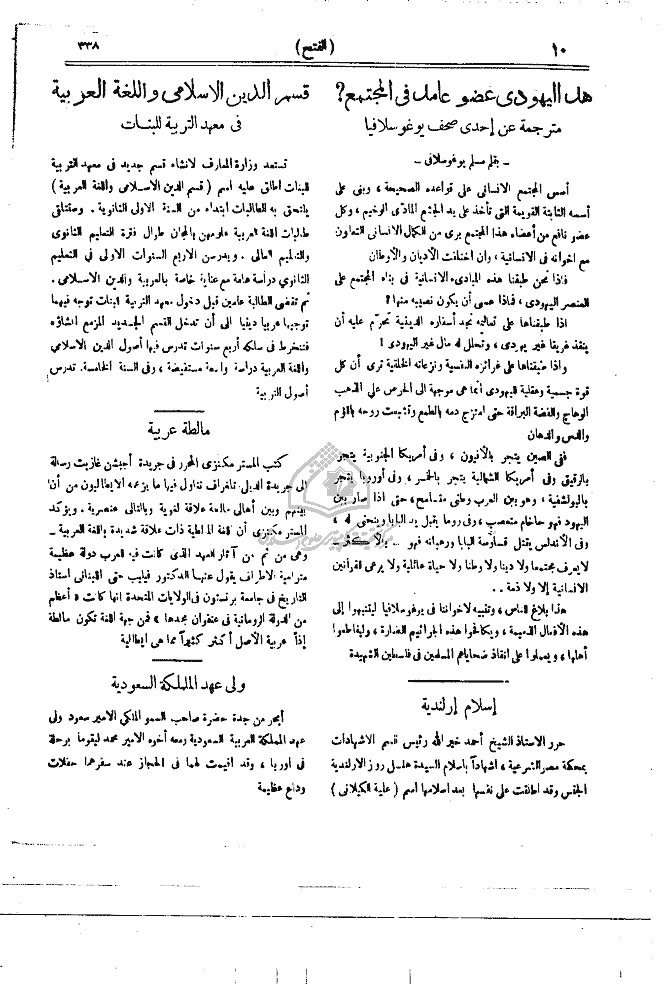 ١٠
(الفتح)
٣٣٨
هل اليهودى عضو عامل فى المجتمع؟
مترجمة عن إحدى صحف يوغوسلافيا
ـ بقلم مسلم يوغوسلافى ـ
أسس المجتمع الانسانى على قواعده الصحيحة ، وبنى على
أسسه الثابتة القويمة التى تأخذ على يد المجتمع المادى الوخيم ، وكل
عضو نافع من أعضاء هذا المجتمع يرى من الكمال الانسانى التعاون
مع اخوانه فى الانسانية ، وان اختلفت الأديان والأوطان
فاذا نحن طبقنا هذه المبادىء الانسانية فى بناء المجتمع على
العنصر اليهودى ، فماذا عسى أن يكون نصيبه منها؟
اذا طبقناها على تعاليمه نجد أسفاره الدينية تحرم عليه أن
ينقذ غريقا غير يهودى ، وتحلل له مال غير اليهودى !
واذا طبقناها على غرائزه النفسية ونزعاته الخلقية ترى أن كل
قوة جسمية وعقلية لليهودى انما هى موجهة الى الحرص على الذهب
الوهاج والفضة البراقة حتى امتزج دمه بالطمع وتشبثت روحه باللؤم
والدس والدهان
ففى الصين يتجر بالأفيون ، وفى أمريكا الجنوبية يتجر
بالرقيق وفى أمريكا الشمالية يتجر بالخمر ، وفى أوروبا يتجر
بالبولشفية ، وهو بين العرب وطنى متسامح ، حتى اذا صار بين
اليهود فهو حاخام متعصب ، وفى روما يقبل يد البابا وينحنى له ،
وفى الأندلس يقتل قساوسة البابا ورهبانه فهو ...
لا يعرف مجتمعا ولا دينا ولا وطنا ولا حياة عائلية ولا يرعى القرآنين
الانسانية إلا ولا ذمة ..
هذا بلاغ للناس ، وتنبيه لاخواننا فى يوغوسلافيا لينتبهوا إلى
هذه الأفعال الذميمة ، ويكافحوا هذه الجراثيم الضارة ، وليقاطعوا
أهلها ، ويعملوا على انقاذ ضحاياهم المسلمين فى فلسطين الشهيدة
إسلام إرلندية
حرر الاستاذ الشيخ أحمد خير الله رئيس قسم الاشهادات
بمحكمة مصر الشرعية ، اشهاداً باسلام السيدة هلسل روز الارلندية
الجنس وقد أطلقت على نفسها بعد اسلامها اسم ( علية الكيلانى )
قسم الدين الاسلامى واللغة العربية
فى معهد التربية للبنات
تستعد وزارة المعارف لانشاء قسم جديد فى معهد التربية
للبنات اطلق عليه اسم ( قسم الدين الاسلامى واللغة العربية )
يلتحق به للطالبات ابتداء من السنة الاولى الثانوية . وستتلقى
طالبات اللغة العربية علومهن بالمجان طوال فترة التعليم الثانوى
والتعليم العالى . ويدرسن الاربع السنوات الاولى فى التعليم
الثانوي دراسة عامة مع عناية خاصة بالعربية والدين الاسلامى .
ثم تقضى الطالبة عامين قبل دخول معهد التربية للبنات توجه فيهما
توجيها عربيا دينيا الى أن تدخل القسم الجديد المزمع انشاؤه
فتنخرط فى سلكه أربع سنوات تدرس فيها أصول الدين الاسلامي
واللغة العربية دراسة واسعة مستفيضة ، وفى السنة الخامسة تدرس
أصول التربية
مالطة عربية
كتب المستر مكنزى المحرر فى جريدة أجبشن غازيت رسالة
الى جريدة الديلى تلغراف تناول فيها ما يزعمه الايطاليون من أن
بينهم وبين أهالى مالطة علاقة لغوية وبالتالى عنصرية . ويؤكد
المستر مكنزى أن اللغة المالطية ذات علاقة شديدة باللغة العربية ـ
وهى من ثم من آثار العهد الذى كانت فيه للعرب دولة عظيمة
مترامية الاطراف يقول عنها الدكتور فيليب حتى اللبنانى استاذ
التاريخ فى جامعة برنستون فى الولايات المتحدة انها كانت « أعظم
من الدولة الرومانية فى عنفوان مجدها » فمن جهة اللغة تكون مالطة
إذاً عربية الأصل أكثر كثيراً مما هى ايطالية
ولى عهد المملكة السعودية
أبحر من جدة حضرة صاحب السمو الملكي الامير سعود ولى
عهد المملكة العربية السعودية ومعه أخوه الامير محمد ليقوما برحلة
فى أوربا ، وقد اقيمت لهما فى الحجاز عند سفرهما حفلات
وداع عظيمة